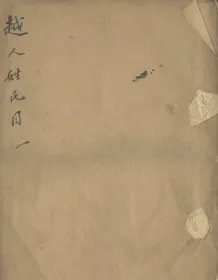 越人姓氏目一